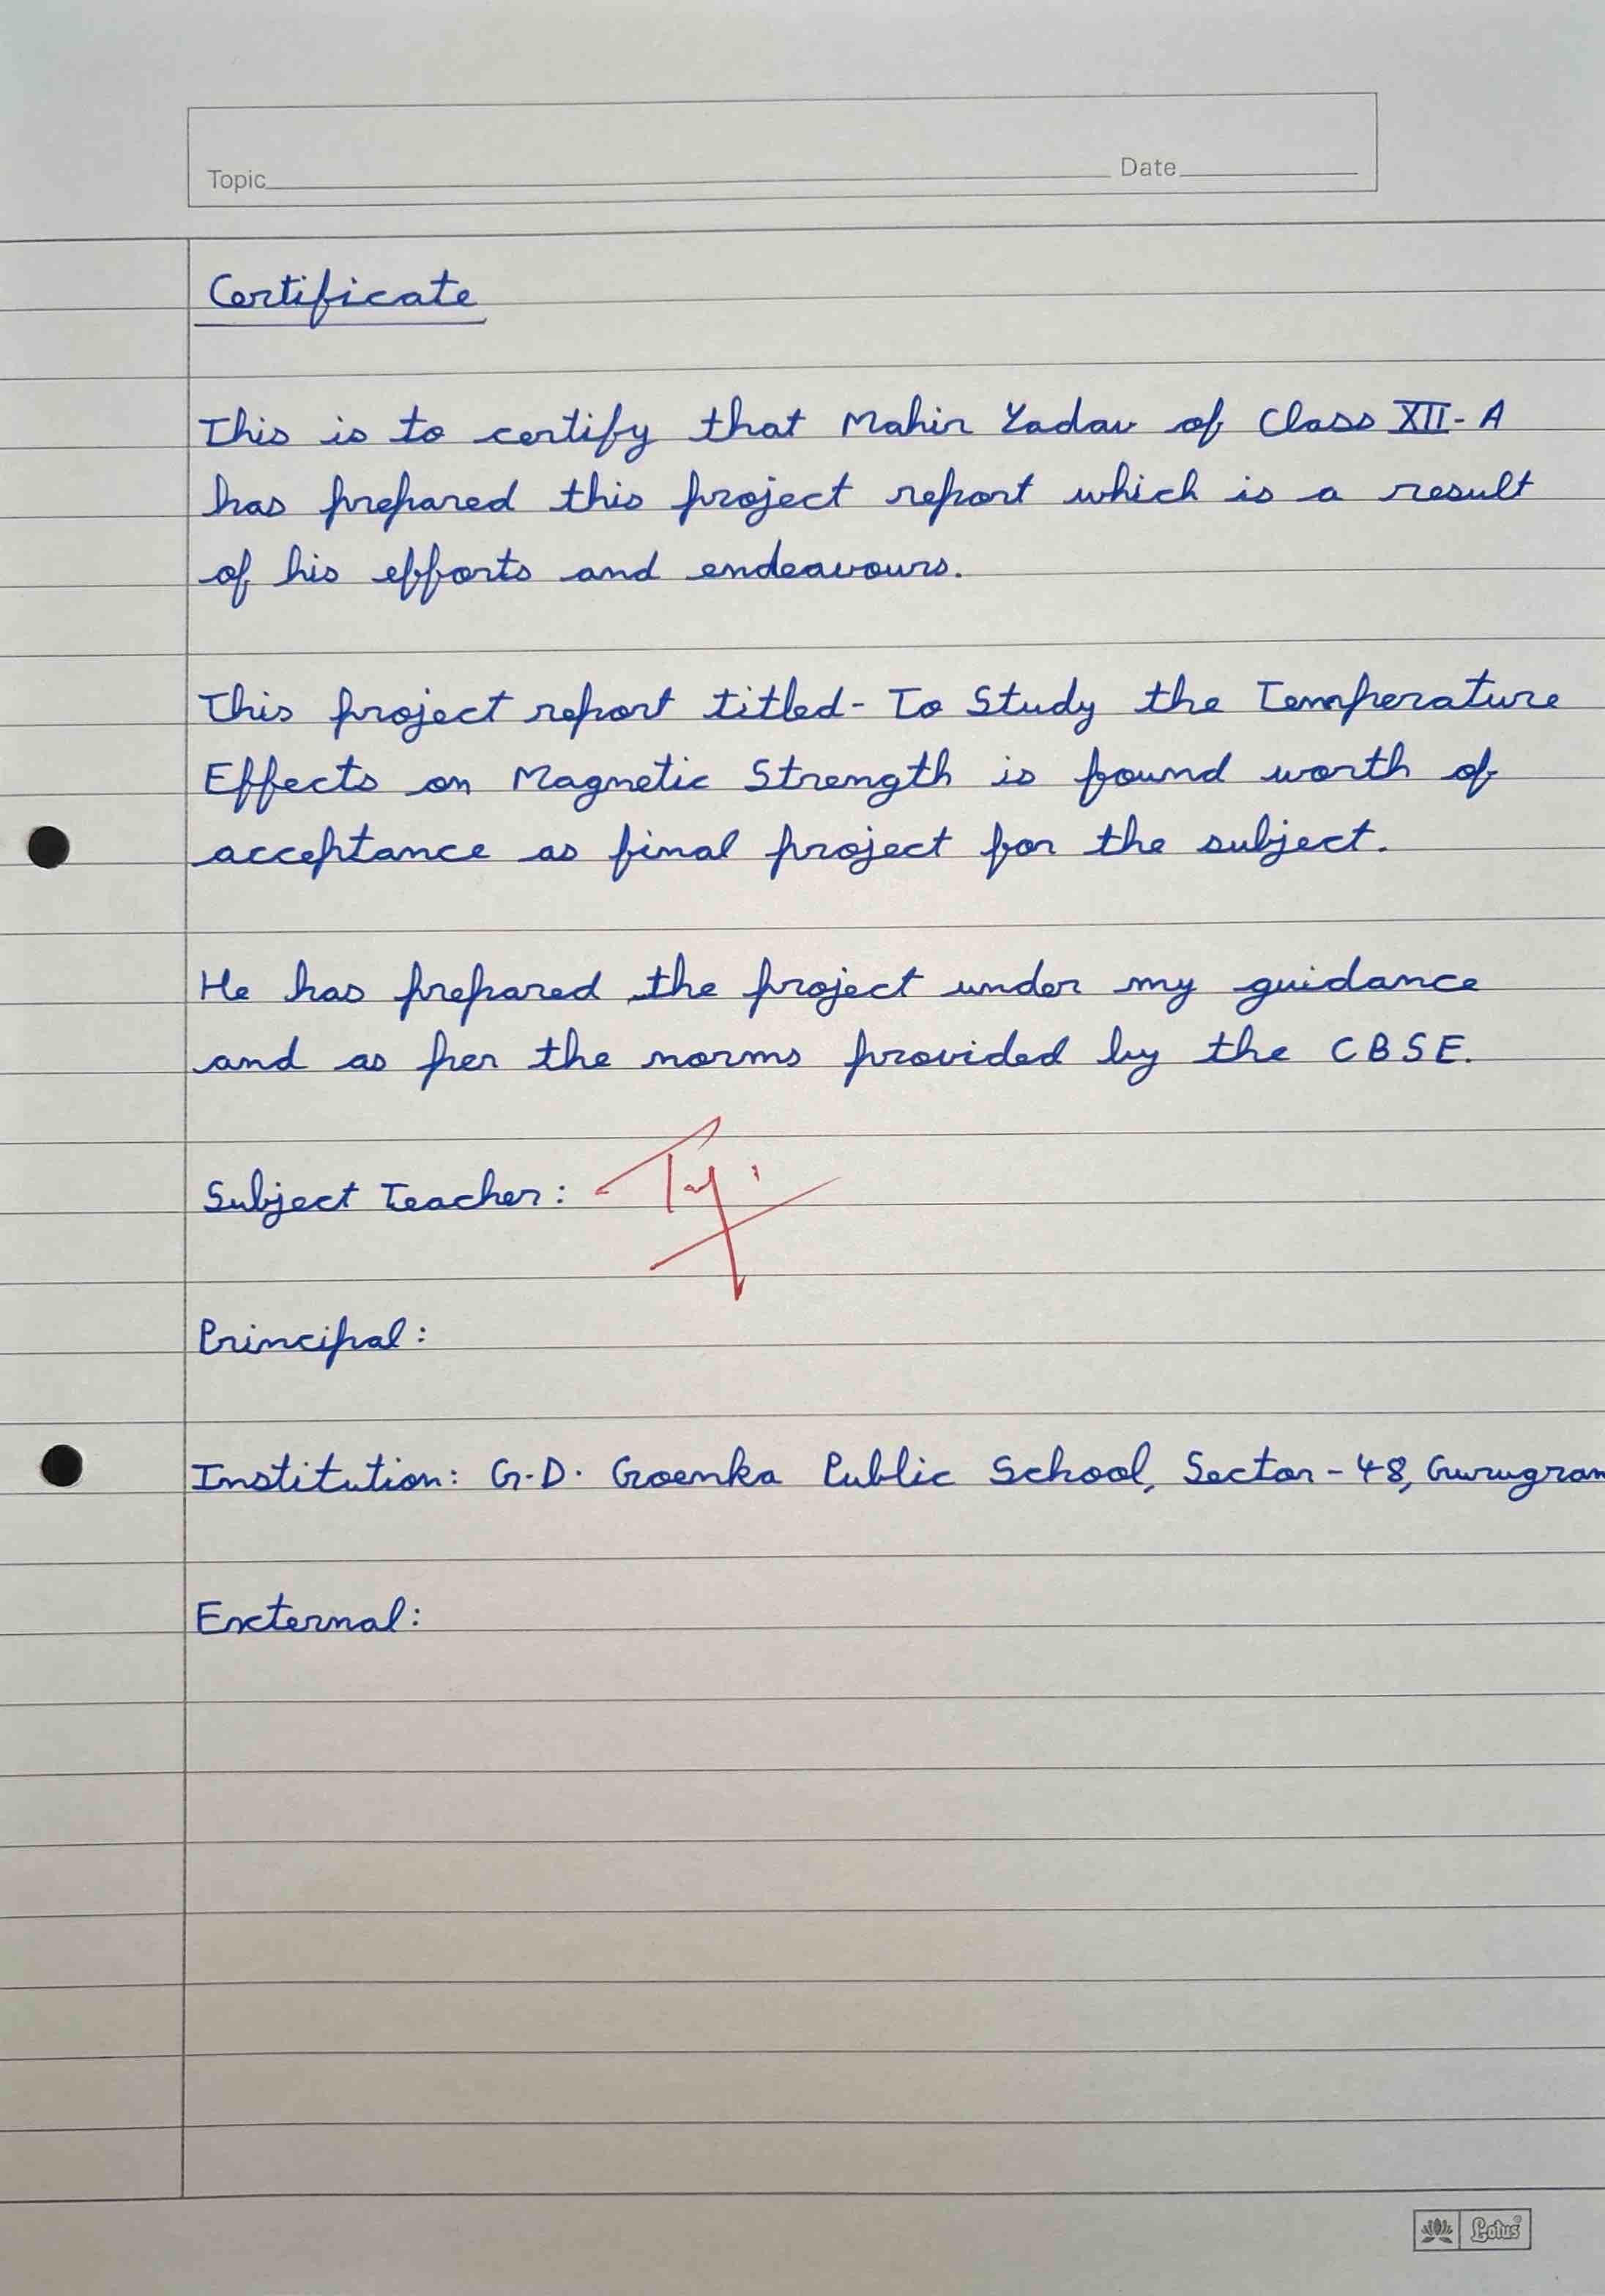 Topic Date
Certificate
This is to certify that Mahir Yadav of Class XII-A
has prepared this project report which is a result
of his efforts and endeavours.
This project report titled- To Study the Temperature
Effects on Magnetic Strength is found worth of
acceptance as final project for the subject.
He has prepared the project under my guidance
and as per the norms provided by the CBSE.
Subject Teacher:
Principal:
Institution: G.D. Goenka Public School, Sector-48, Gurugram
External:
Lotus